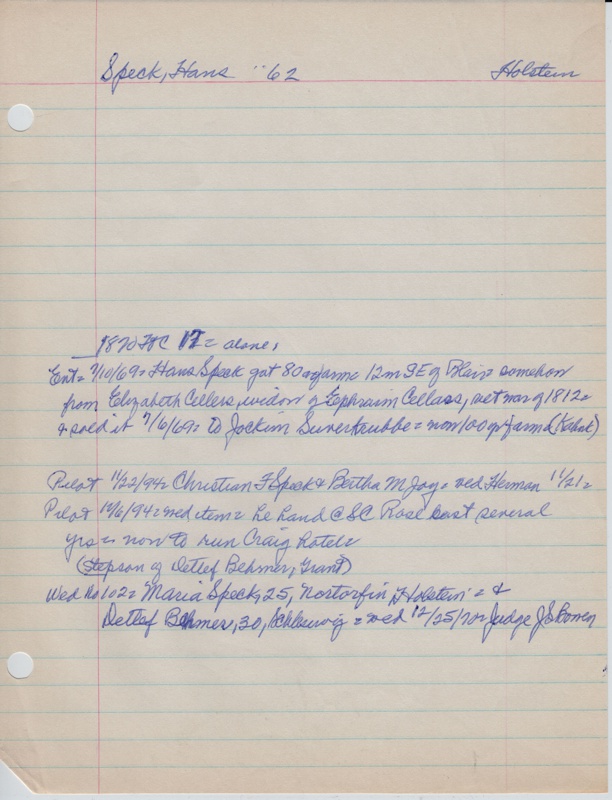 Speck, Hans "62 Holstein
1870 FtC 17 = alone,
Ent = 7/10/69 = Hans Speck got 80 gr farm 12 m SE of Blair somehow
from Elizabeth Cellers, widow of Ephraim Cellars, vet war of 1812 =
& sold it 7/6/69 = to Jockim Suverkrubbe = now 100 gr farm (Kahnk)
Pilot 11/22/94 = Christian F Speck & Bertha M Joy = wed Herman 11/21 =
Pilot 12/6/94 = wed item = he hand C&C Rose east several
yrs = now to run Craig hotel =
(Stepson of Detlef Behmer, Grant)
Wed No 102 = Maria Speck, 25, Nortorfin Holstein = &
Detlef Behmer, 30, Schleswig = wed 12/25/70 = Judge J S Bowen